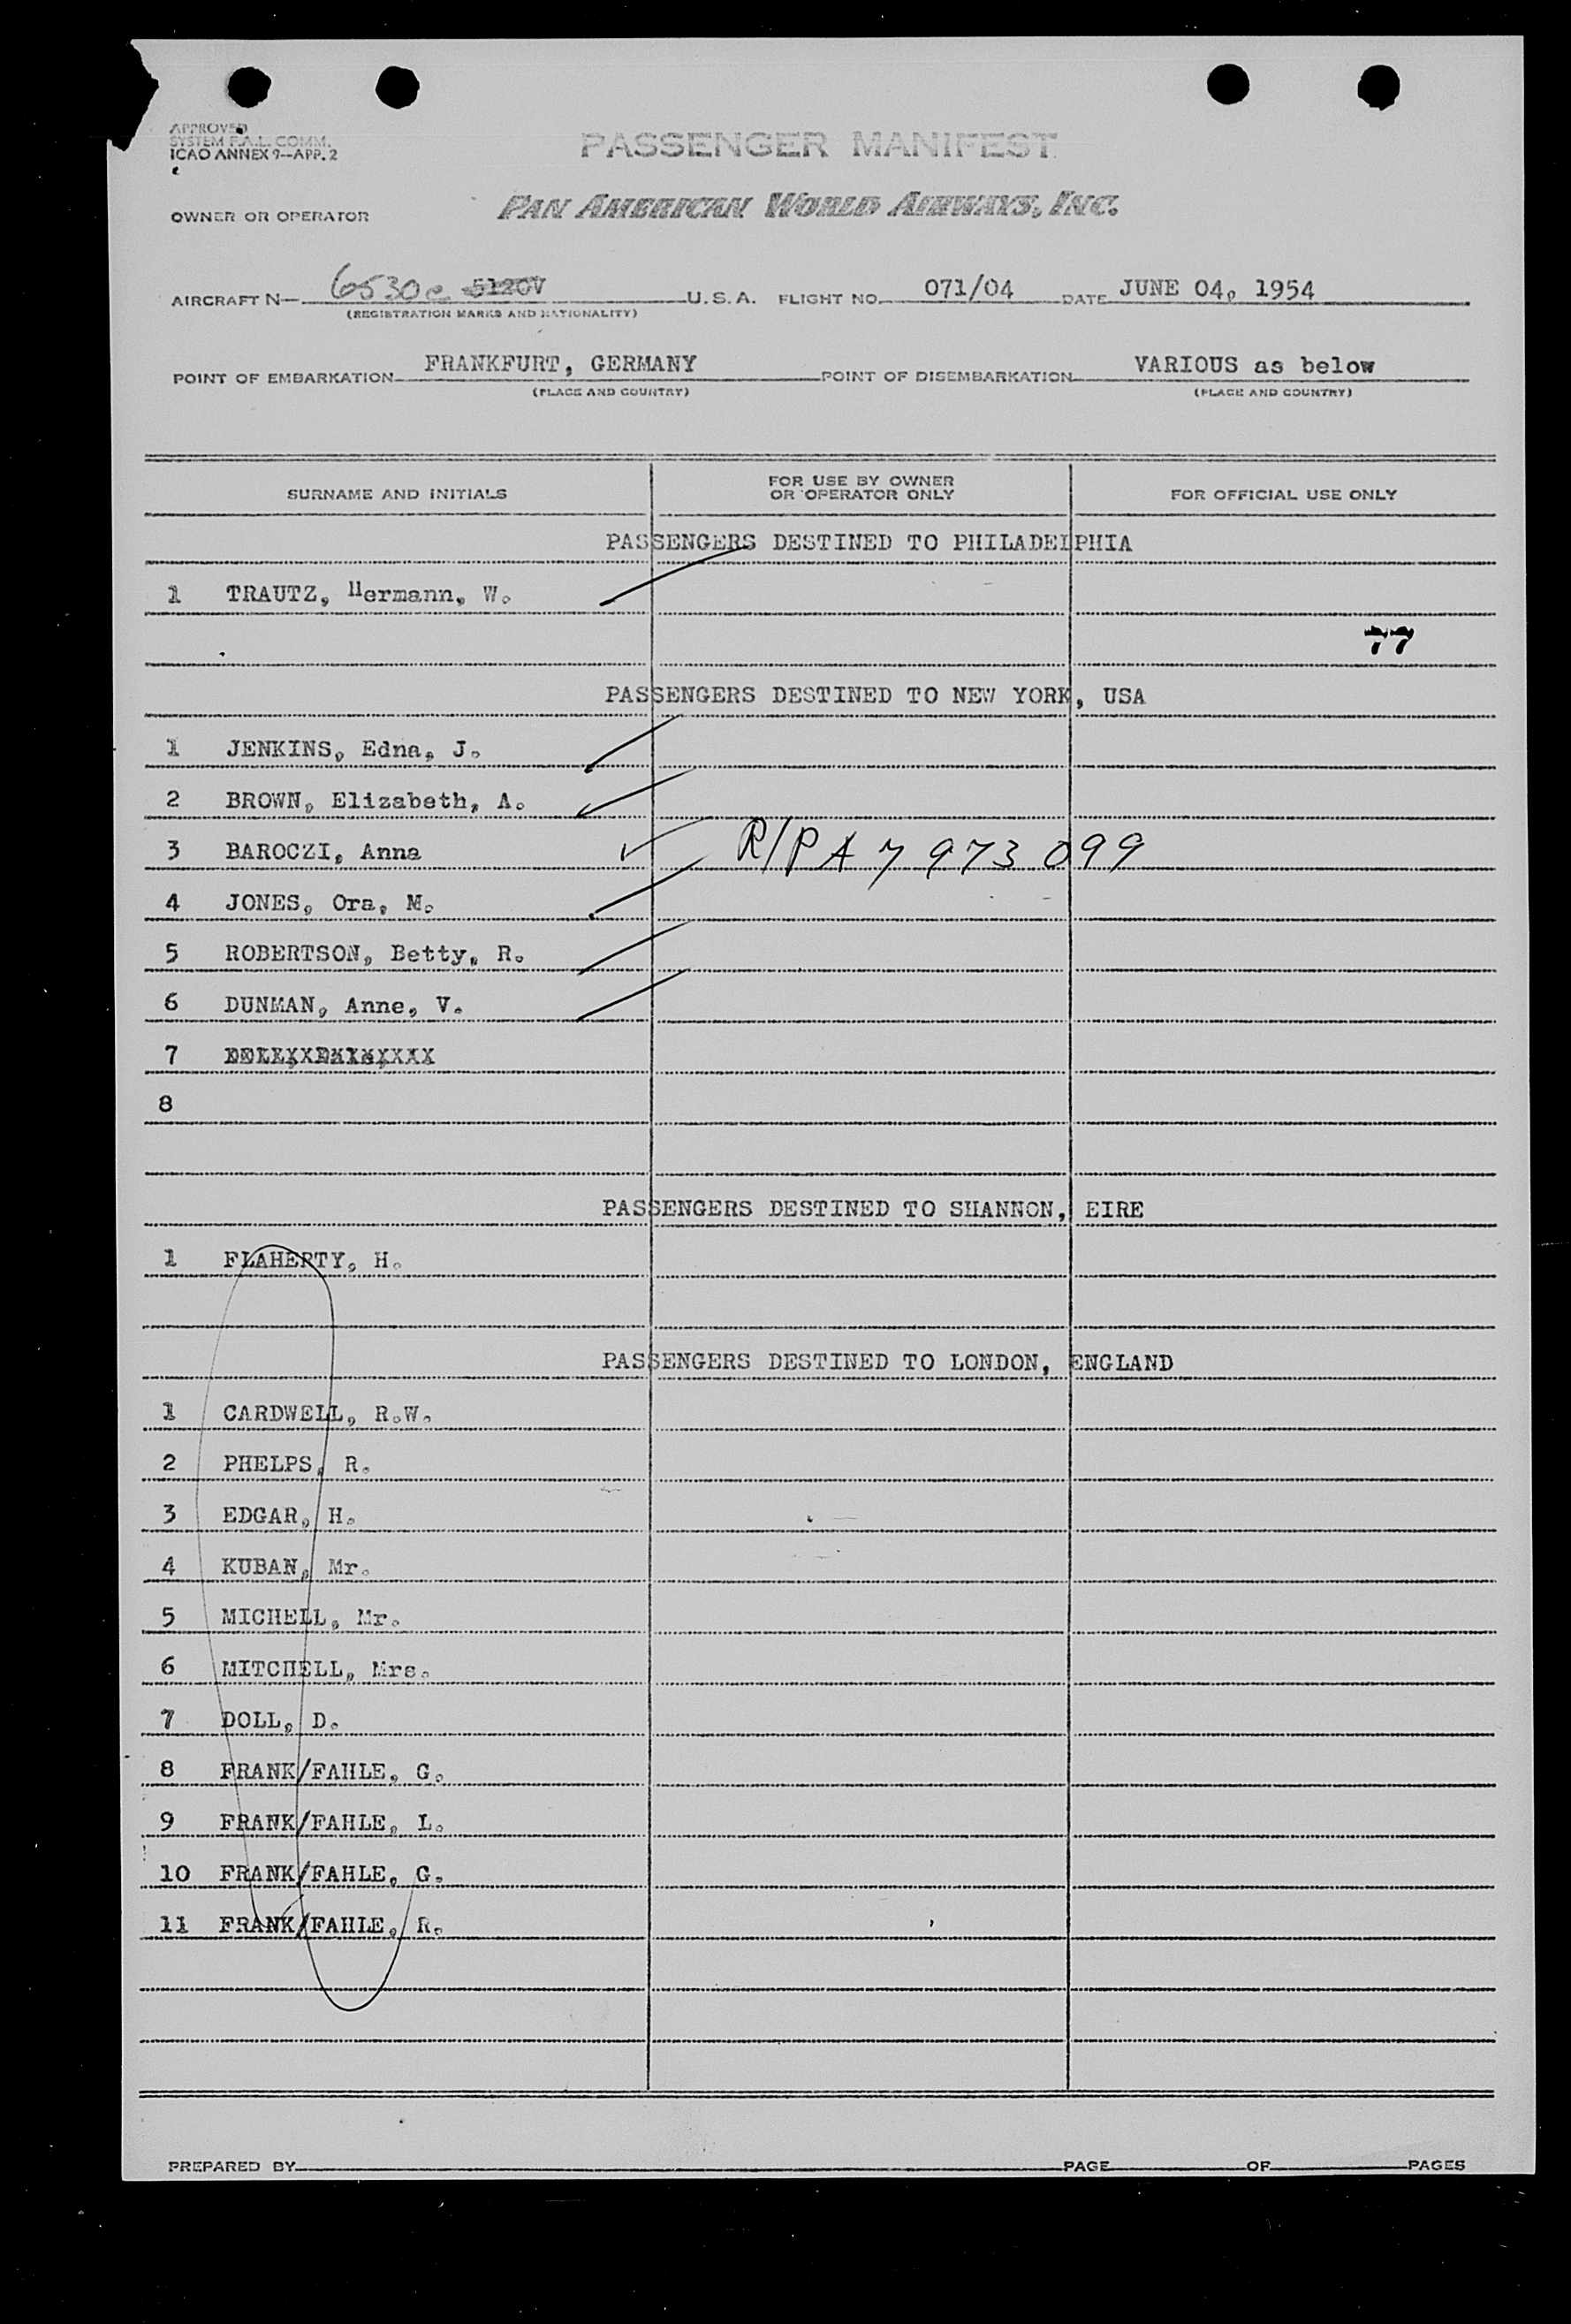 APPROVED
SYSTEM F.A.L. COMM.
ICAO ANNEX 9—APP. 2
PASSENGER MANIFEST
OWNER OR OPERATOR PAN AMERICAN WORLD AIRWAYS, INC.
AIRCRAFT N— 6530c 5120V U.S.A. FLIGHT NO. 071/04 DATE JUNE 04, 1954
(REGISTRATION MARKS AND NATIONALITY)
POINT OF EMBARKATION FRANKFURT, GERMANY POINT OF DISEMBARKATION VARIOUS as below
(PLACE AND COUNTRY) (PLACE AND COUNTRY)
SURNAME AND INITIALS FOR USE BY OWNER OR OPERATOR ONLY FOR OFFICIAL USE ONLY
PASSENGERS DESTINED TO PHILADELPHIA
1 TRAUTZ, Hermann, W.
77
PASSENGERS DESTINED TO NEW YORK, USA
1 JENKINS, Edna, J.
2 BROWN, Elizabeth, A.
3 BAROCZI, Anna R/P A 7 973 099
4 JONES, Ora, M.
5 ROBERTSON, Betty, R.
6 DUNMAN, Anne, V.
7
8
PASSENGERS DESTINED TO SHANNON, EIRE
1 FLAHERTY, H.
PASSENGERS DESTINED TO LONDON, ENGLAND
1 CARDWELL, R.W.
2 PHELPS, R.
3 EDGAR, H.
4 KUBAN, Mr.
5 MICHELL, Mr.
6 MITCHELL, Mrs.
7 DOLL, D.
8 FRANK/FAHLE, G.
9 FRANK/FAHLE, L.
10 FRANK/FAHLE, G.
11 FRANK/FAHLE, R.
PREPARED BY PAGE OF PAGES